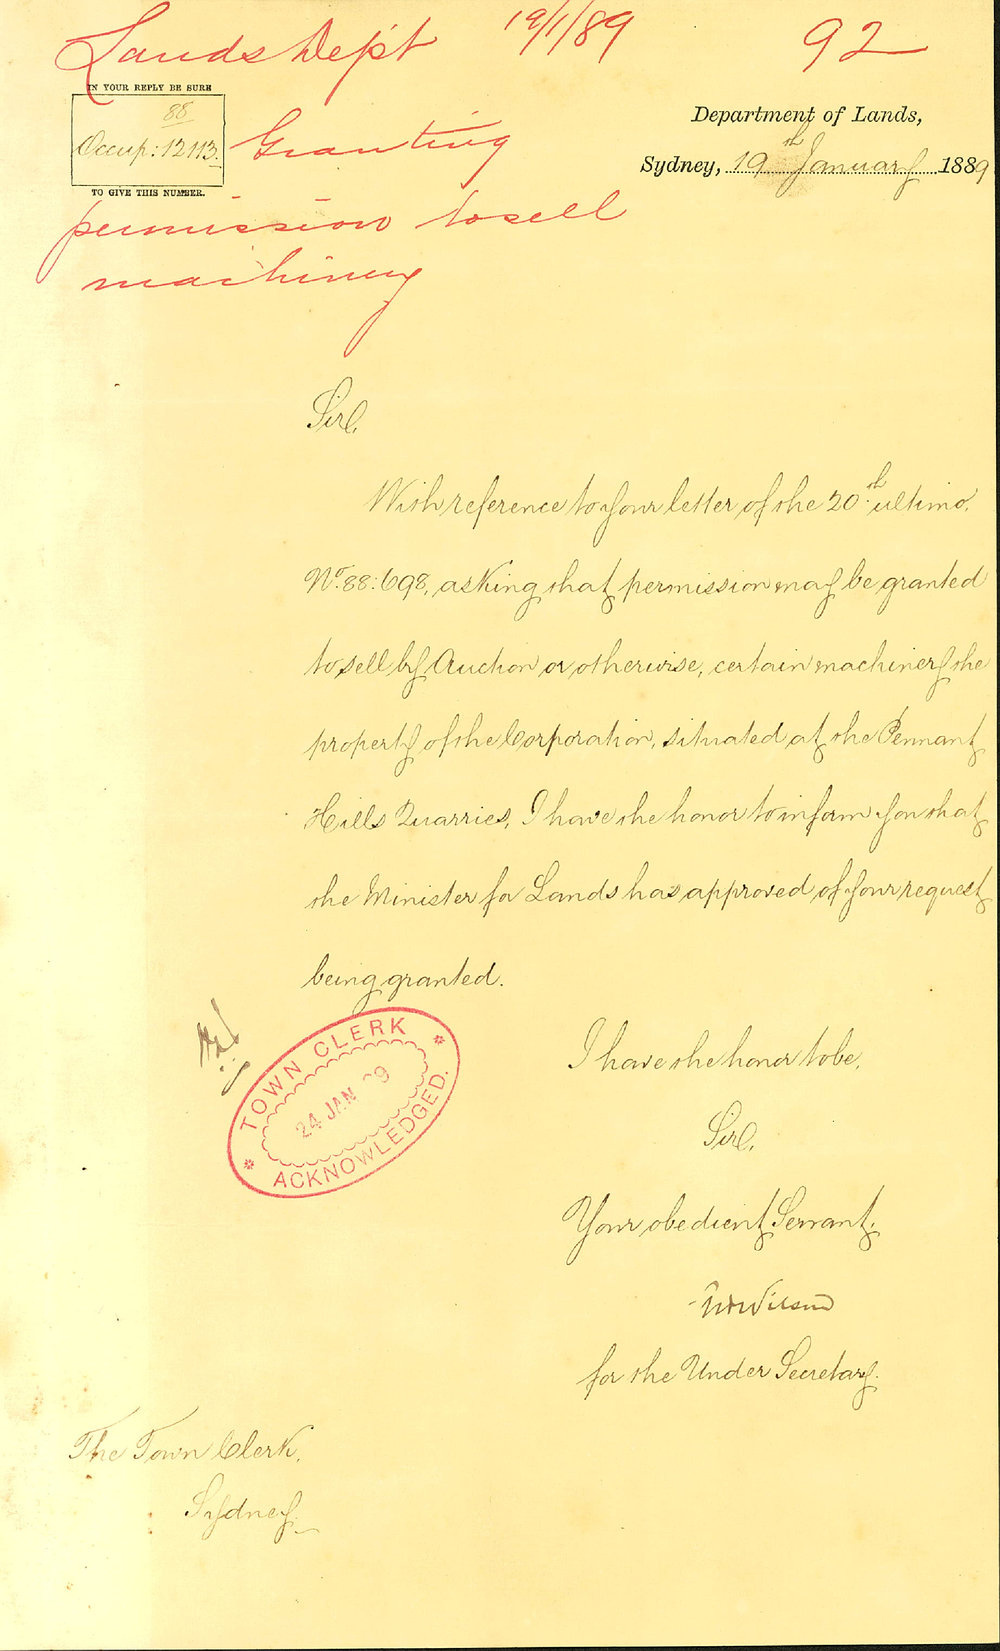 Lands Dept 19/1/89 92
IN YOUR REPLY BE SURE
88
Occup: 12113.
TO GIVE THIS NUMBER.
Granting
permission to sell
machinery
Department of Lands,
Sydney, 19th January 1889
Sir,
With reference to your letter of the 20th ultimo,
No. 88:698, asking that permission may be granted
to sell by Auction or otherwise, certain machinery the
property of the Corporation, situated at the Pennant
Hills Quarries, I have the honor to inform you that
the Minister for Lands has approved of your request
being granted.
TOWN CLERK
24 JAN 9
ACKNOWLEDGED.
I have the honor to be,
Sir,
Your obedient Servant,
Wilson
for the Under Secretary.
The Town Clerk,
Sydney.